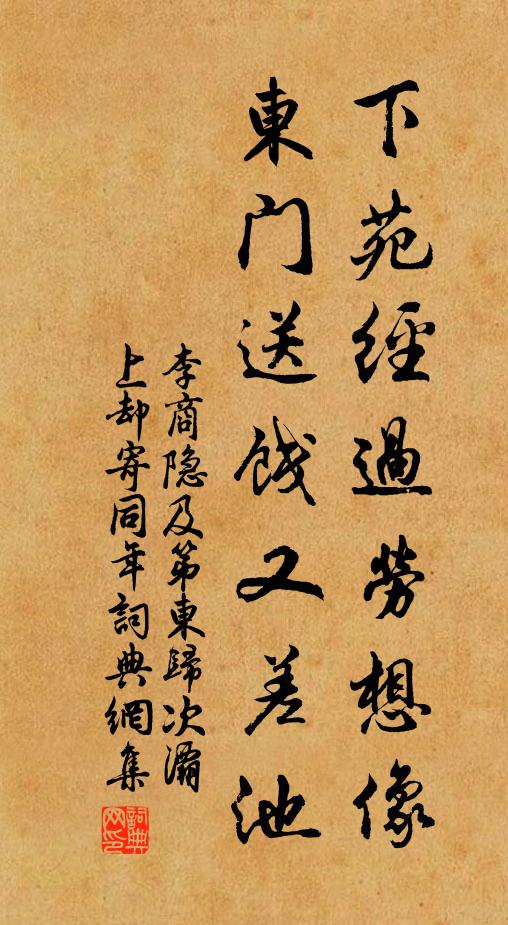 下苑經過勞想像
東门送餞又差池
李商隐及第東歸次灞
上却寄同年詞典網集
詞典网印